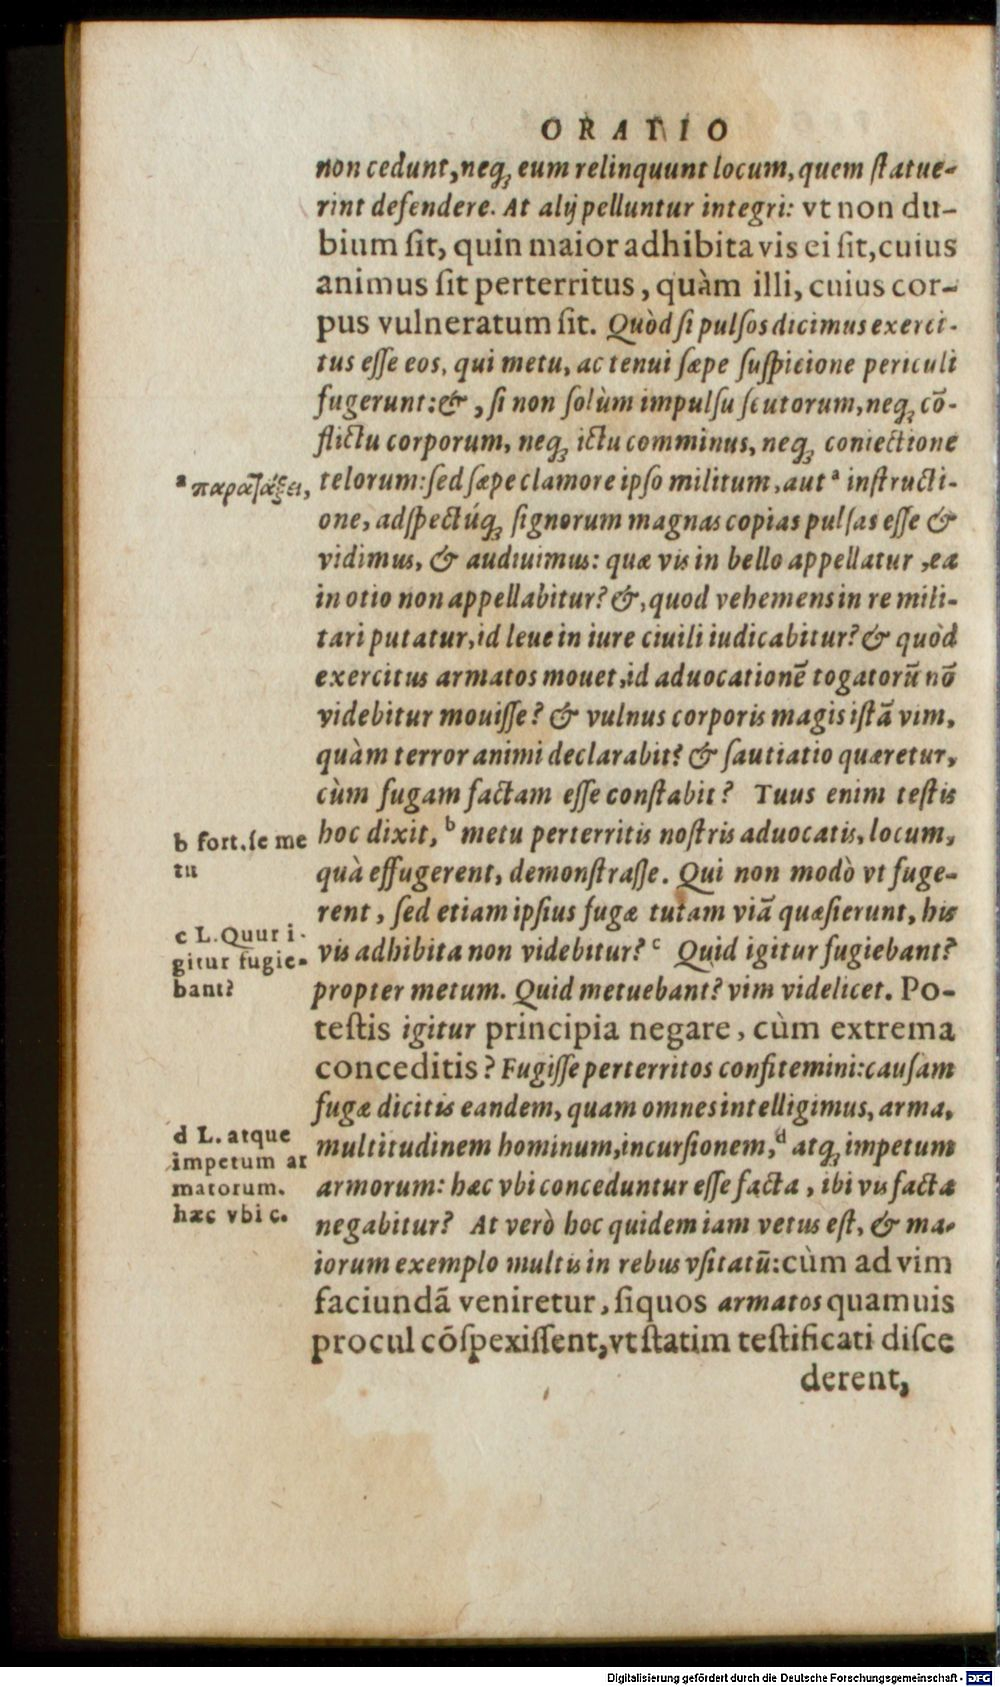 ORATIO
non cedunt, neq; eum relinquunt locum, quem ſtatue-
rint defendere. At alij pelluntur integri: vt non du-
bium ſit, quin maior adhibita vis ei ſit, cuius
animus ſit perterritus, quàm illi, cuius cor-
pus vulneratum ſit. Quòd ſi pulſos dicimus exerci-
tus eſſe eos, qui metu, ac tenui ſæpe ſuſpicione periculi
fugerunt: &, ſi non ſolùm impulſu ſcutorum, neq; cō-
flictu corporum, neq; ictu comminus, neq; coniectione
telorum: ſed ſæpe clamore ipſo militum, aut ᵃ inſtructi-
one, adſpectúq; ſignorum magnas copias pulſas eſſe &
vidimus, & audiuimus: quæ vis in bello appellatur, ea
in otio non appellabitur? &, quod vehemens in re mili-
tari putatur, id leue in iure ciuili iudicabitur? & quòd
exercitus armatos mouet, id aduocationē togatorū nō
videbitur mouiſſe? & vulnus corporis magis iſtā vim,
quàm terror animi declarabit? & ſautiatio quæretur,
cùm fugam factam eſſe conſtabit? Tuus enim teſtis
hoc dixit, ᵇ metu perterritis noſtris aduocatis, locum,
quà effugerent, demonſtraſſe. Qui non modò vt fuge-
rent, ſed etiam ipſius fugæ tutam viā quæſierunt, his
vis adhibita non videbitur? ᶜ Quid igitur fugiebant?
propter metum. Quid metuebant? vim videlicet. Po-
teſtis igitur principia negare, cùm extrema
conceditis? Fugiſſe perterritos confitemini: cauſam
fugæ dicitis eandem, quam omnes intelligimus, arma,
multitudinem hominum, incurſionem, ᵈ atq; impetum
armorum: hæc vbi conceduntur eſſe facta, ibi vis facta
negabitur? At verò hoc quidem iam vetus eſt, & ma-
iorum exemplo multis in rebus vſitatū: cùm ad vim
faciundā veniretur, ſiquos armatos quamuis
procul cōſpexiſſent, vt ſtatim teſtificati diſce
derent,
ᵃ παρατάξει,
b fort. ſe me
tu
c L. Quur i-
gitur fugie-
bant?
d L. atque
impetum ar
matorum.
hæc vbi c.
Digitalisierung gefördert durch die Deutsche Forschungsgemeinschaft - DFG